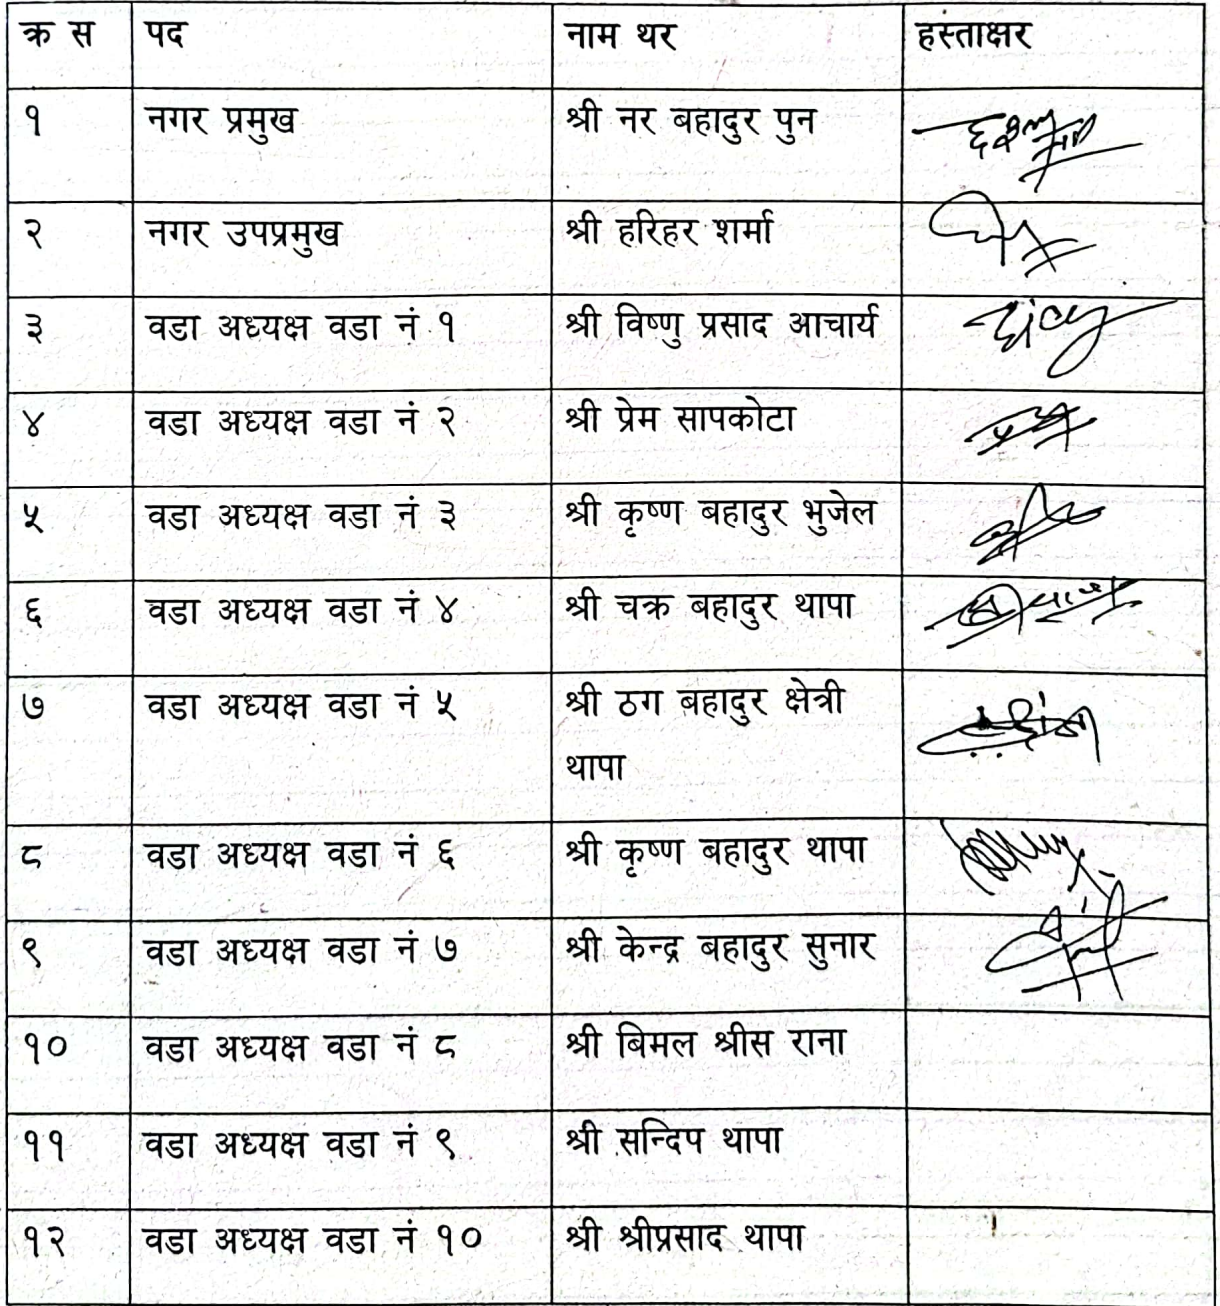 क्र स पद नाम थर हस्ताक्षर
१ नगर प्रमुख श्री नर बहादुर पुन
२ नगर उपप्रमुख श्री हरिहर शर्मा
३ वडा अध्यक्ष वडा नं १ श्री विष्णु प्रसाद आचार्य
४ वडा अध्यक्ष वडा नं २ श्री प्रेम सापकोटा
५ वडा अध्यक्ष वडा नं ३ श्री कृष्ण बहादुर भुजेल
६ वडा अध्यक्ष वडा नं ४ श्री चक्र बहादुर थापा
७ वडा अध्यक्ष वडा नं ५ श्री ठग बहादुर क्षेत्री
थापा
८ वडा अध्यक्ष वडा नं ६ श्री कृष्ण बहादुर थापा
९ वडा अध्यक्ष वडा नं ७ श्री केन्द्र बहादुर सुनार
१० वडा अध्यक्ष वडा नं ८ श्री बिमल श्रीस राना
११ वडा अध्यक्ष वडा नं ९ श्री सन्दिप थापा
१२ वडा अध्यक्ष वडा नं १० श्री श्रीप्रसाद थापा